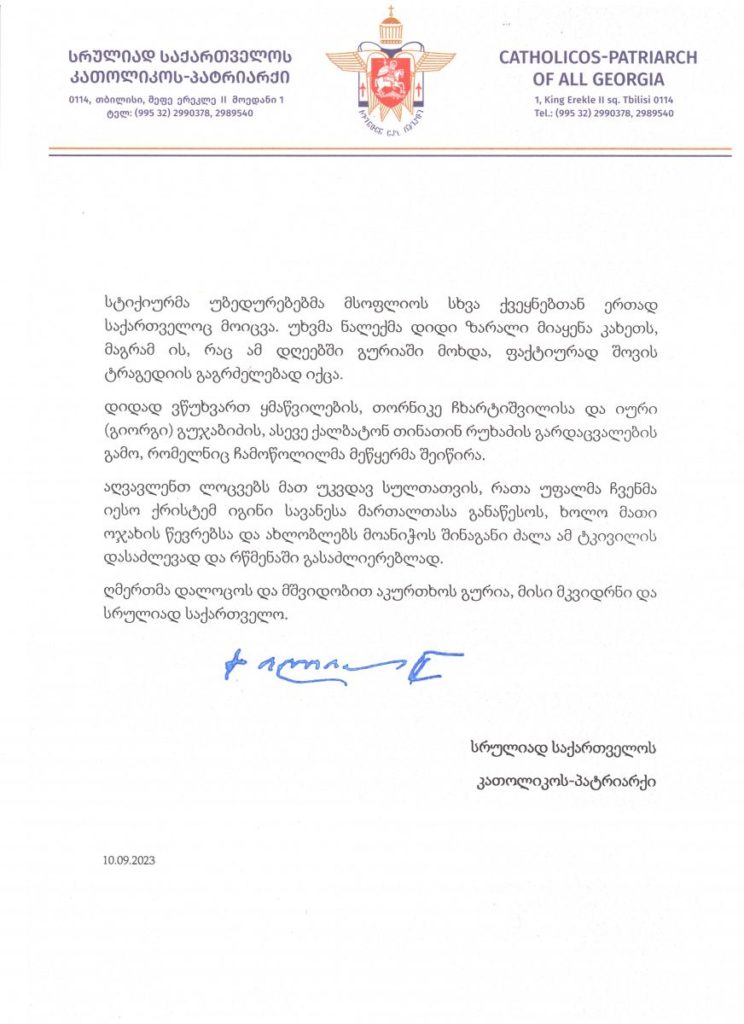 ᲡᲠᲣᲚᲘᲐᲓ ᲡᲐᲥᲐᲠᲗᲕᲔᲚᲝᲡ
ᲙᲐᲗᲝᲚᲘᲙᲝᲡ-ᲞᲐᲢᲠᲘᲐᲠᲥᲘ
0114, თბილისი, მეფე ერეკლე II მოედანი 1
ტელ: (995 32) 2990378, 2989540
CATHOLICOS-PATRIARCH
OF ALL GEORGIA
1, King Erekle II sq. Tbilisi 0114
Tel.: (995 32) 2990378, 2989540
სტიქიურმა უბედურებებმა მსოფლიოს სხვა ქვეყნებთან ერთად
საქართველოც მოიცვა. უხვმა ნალექმა დიდი ზარალი მიაყენა კახეთს,
მაგრამ ის, რაც ამ დღეებში გურიაში მოხდა, ფაქტიურად შოვის
ტრაგედიის გაგრძელებად იქცა.
დიდად ვწუხვართ ყმაწვილების, თორნიკე ჩხარტიშვილისა და იური
(გიორგი) გუჯაბიძის, ასევე ქალბატონ თინათინ რუხაძის გარდაცვალების
გამო, რომელნიც ჩამოწოლილმა მეწყერმა შეიწირა.
აღვავლენთ ლოცვებს მათ უკვდავ სულთათვის, რათა უფალმა ჩვენმა
იესო ქრისტემ იგინი სავანესა მართალთასა განაწესოს, ხოლო მათი
ოჯახის წევრებსა და ახლობლებს მოანიჭოს შინაგანი ძალა ამ ტკივილის
დასაძლევად და რწმენაში გასაძლიერებლად.
ღმერთმა დალოცოს და მშვიდობით აკურთხოს გურია, მისი მკვიდრნი და
სრულიად საქართველო.
სრულიად საქართველოს
კათოლიკოს-პატრიარქი
10.09.2023